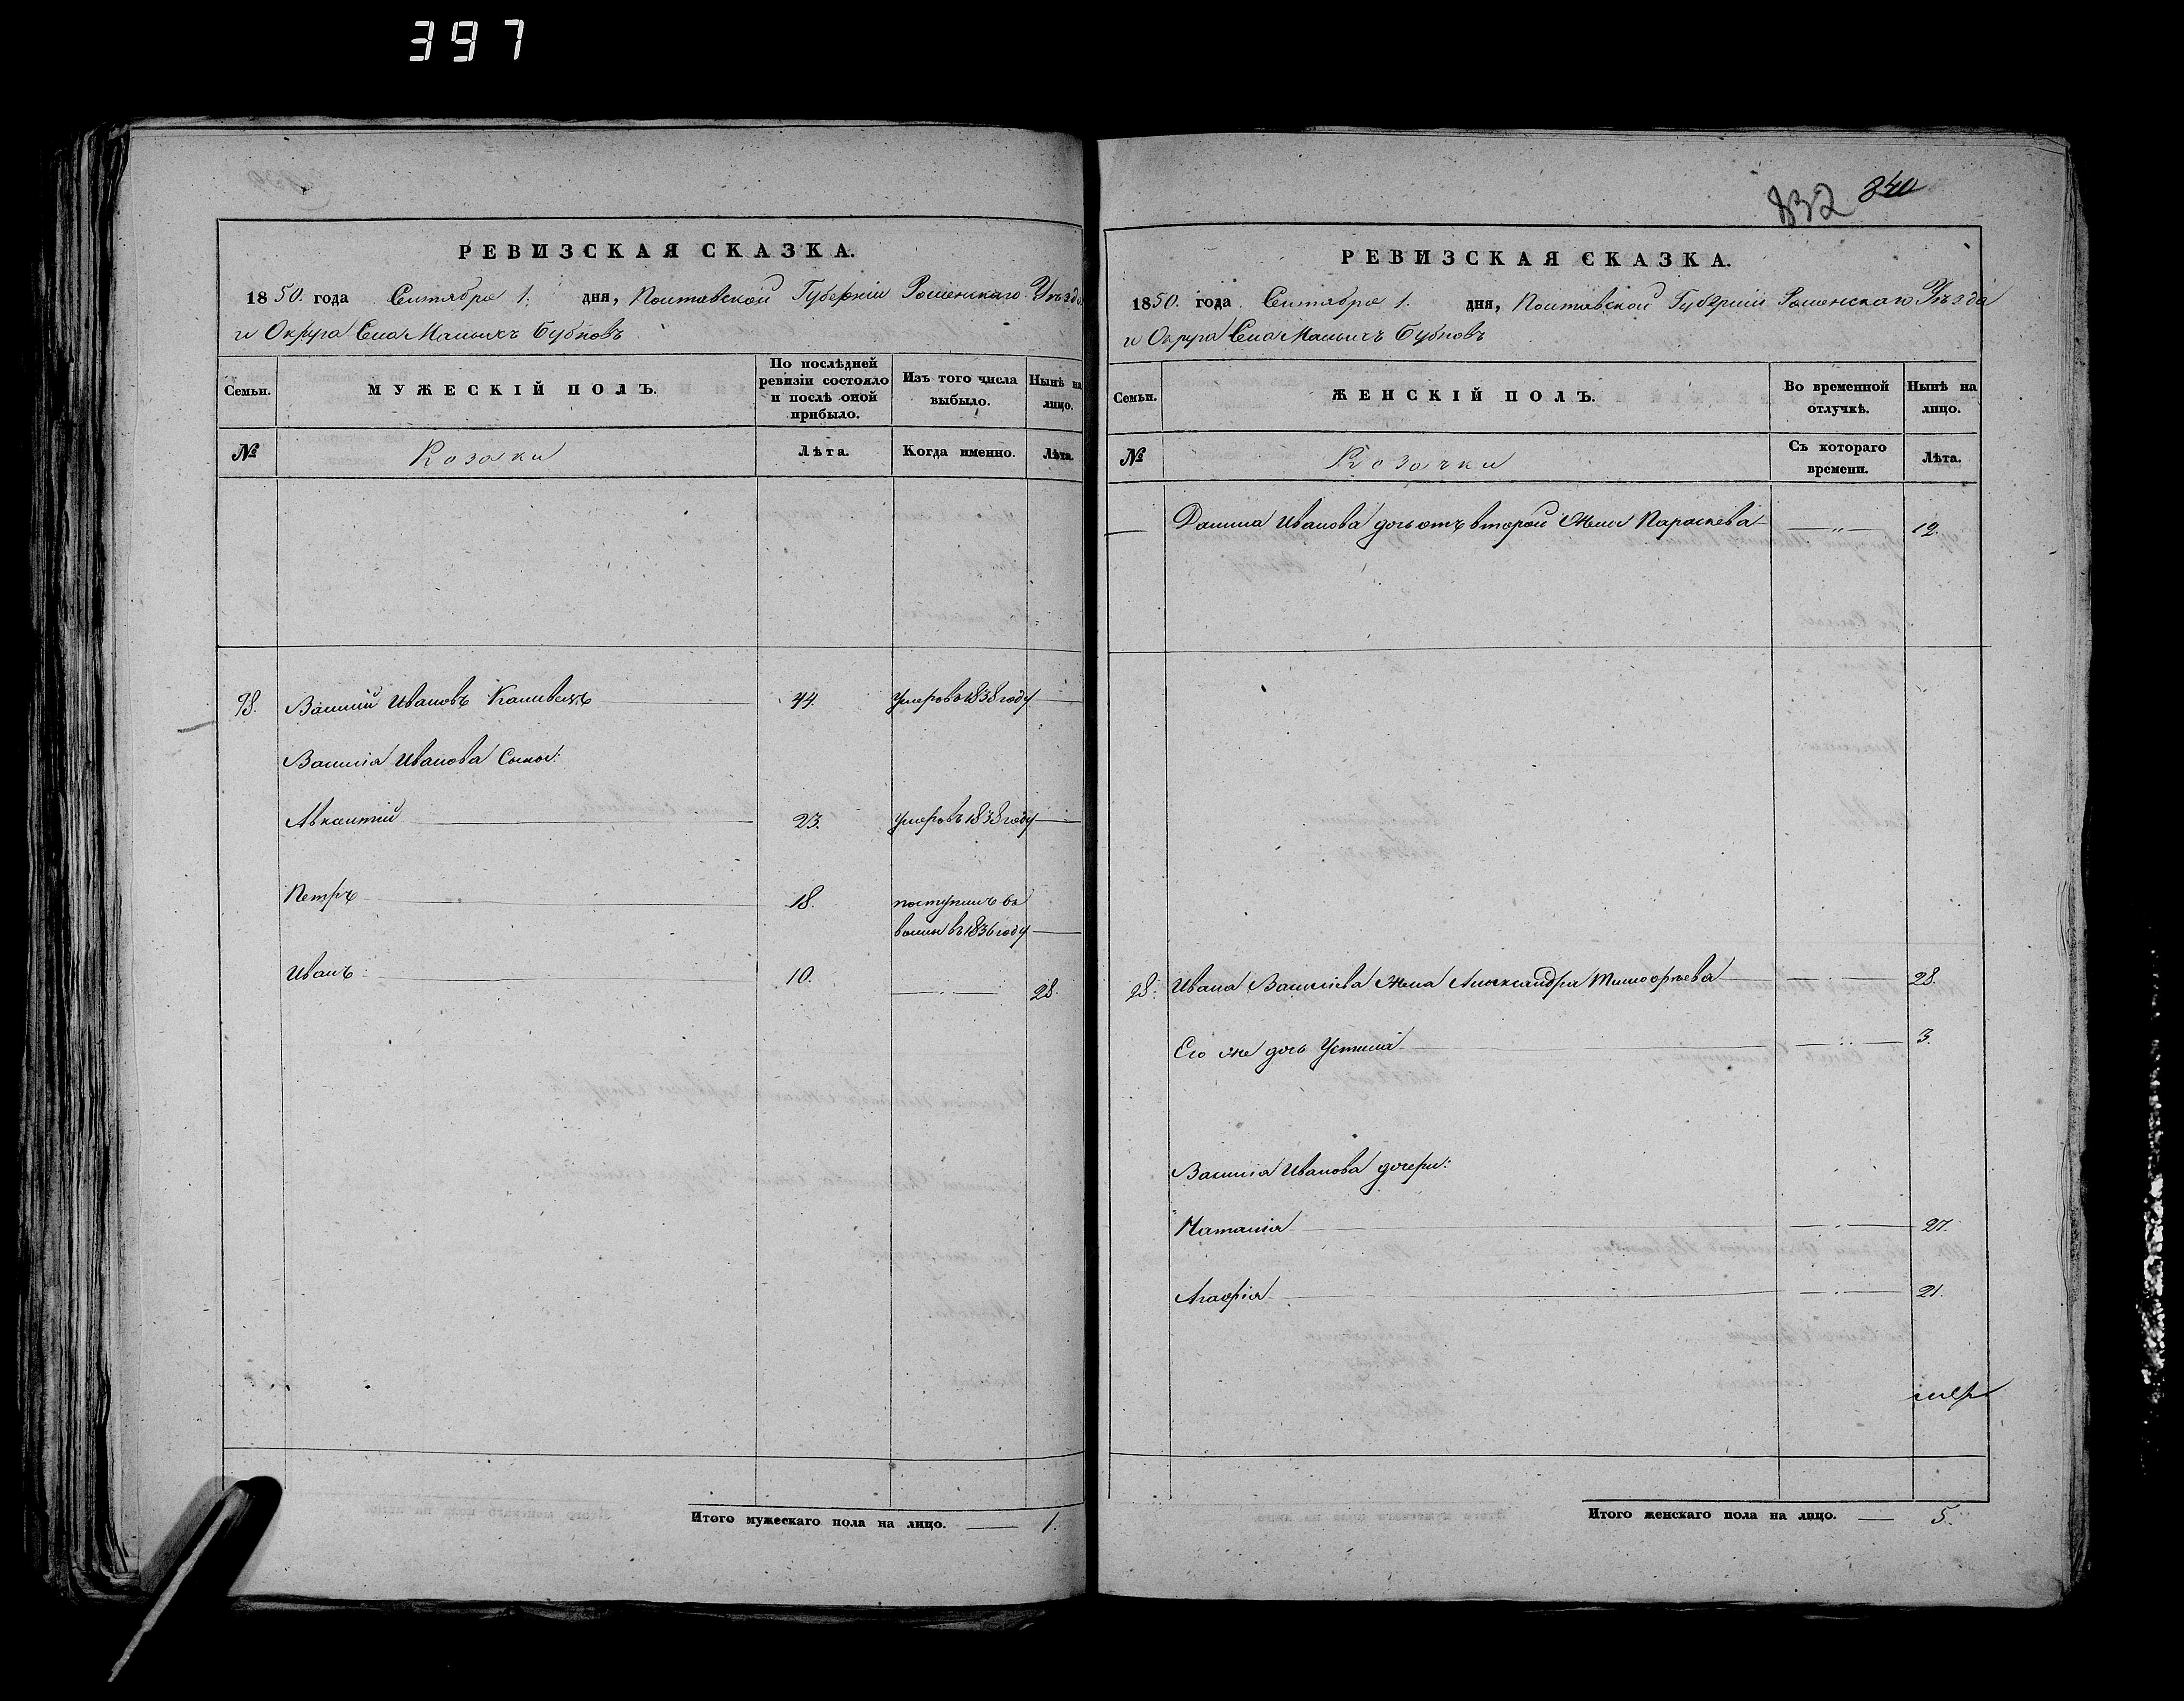 397
РЕВИЗСКАЯ СКАЗКА.
1850. года Сентября 1. дня, Полтавской Губерніи Роменскаго Уезда
и Округа Села Малыхъ Бубновъ
Семьи.
МУЖЕСКІЙ ПОЛЪ.
По послѣдней ревизіи состояло и послѣ оной прибыло.
Изъ того числа выбыло.
Нынѣ на лицо.
№
Козаки
Лѣта.
Когда именно.
Лѣта.
98. Василій Ивановъ 44. Умеръ въ 1838 году
Василія Иванова Сыны:
Авксентій 23. умеръ въ 1838 году
Петръ 18. поступилъ въ
въ 1836 году
Иванъ 10. 28.
Итого мужескаго пола на лицо. 1.
832 840
РЕВИЗСКАЯ СКАЗКА.
1850. года Сентября 1. дня, Полтавской Губерніи Роменскаго Уѣзда
и Округа Села Малыхъ Бубновъ
Семьи.
ЖЕНСКІЙ ПОЛЪ.
Во временной отлучкѣ.
Нынѣ на лицо.
№
Козачки
Съ котораго времени.
Лѣта.
Иванова дочь отъ второй жены Параскева — „ — 12.
98. Ивана Васильева жена Александра Тимофѣева 28.
Его же дочь Устинія 3.
Василія Иванова дочери:
Наталія 27.
Агафія 21.
Итого женскаго пола на лицо. 5.